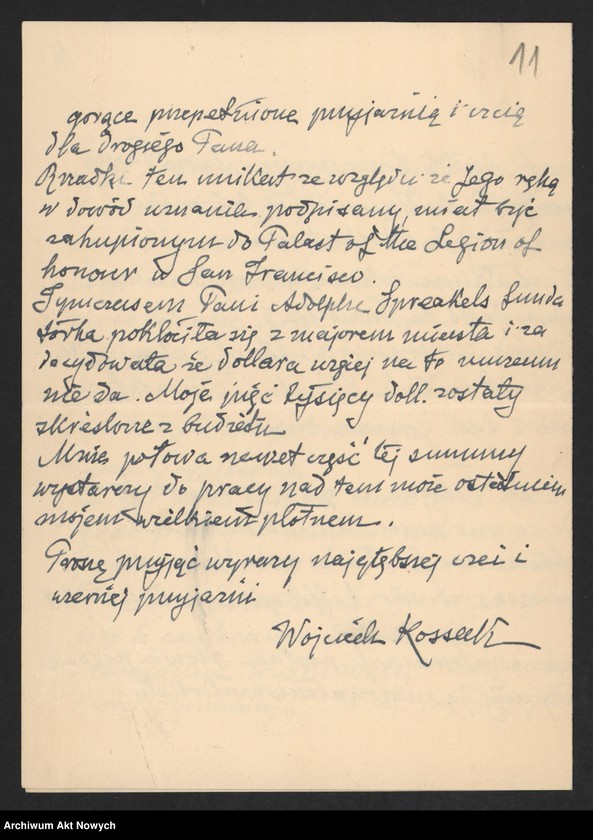 11
gorące przepełnione przyjaźnią i czcią
dla drogiego Pana.
Rzadki ten unikat ze względu że Jego ręką
w dowód uznania podpisany, miał być
zakupionym do Palast of the Legion of
honour w San Francisco.
Tymczasem Pani Adolphe Spreakels funda
torka pokłóciła się z majorem miasta i za
decydowała że dollara więcej na to muzeum
nie da. Moje pięć tysięcy doll. zostały
skreślone z budżetu
Mnie połowa nawet część tej summy
wystarczy do pracy nad tem może ostatniem
mojem wielkiem płótnem.
Proszę przyjąć wyrazy najgłębszej czci i
wiernej przyjaźni
Wojciech Kossak
Archiwum Akt Nowych